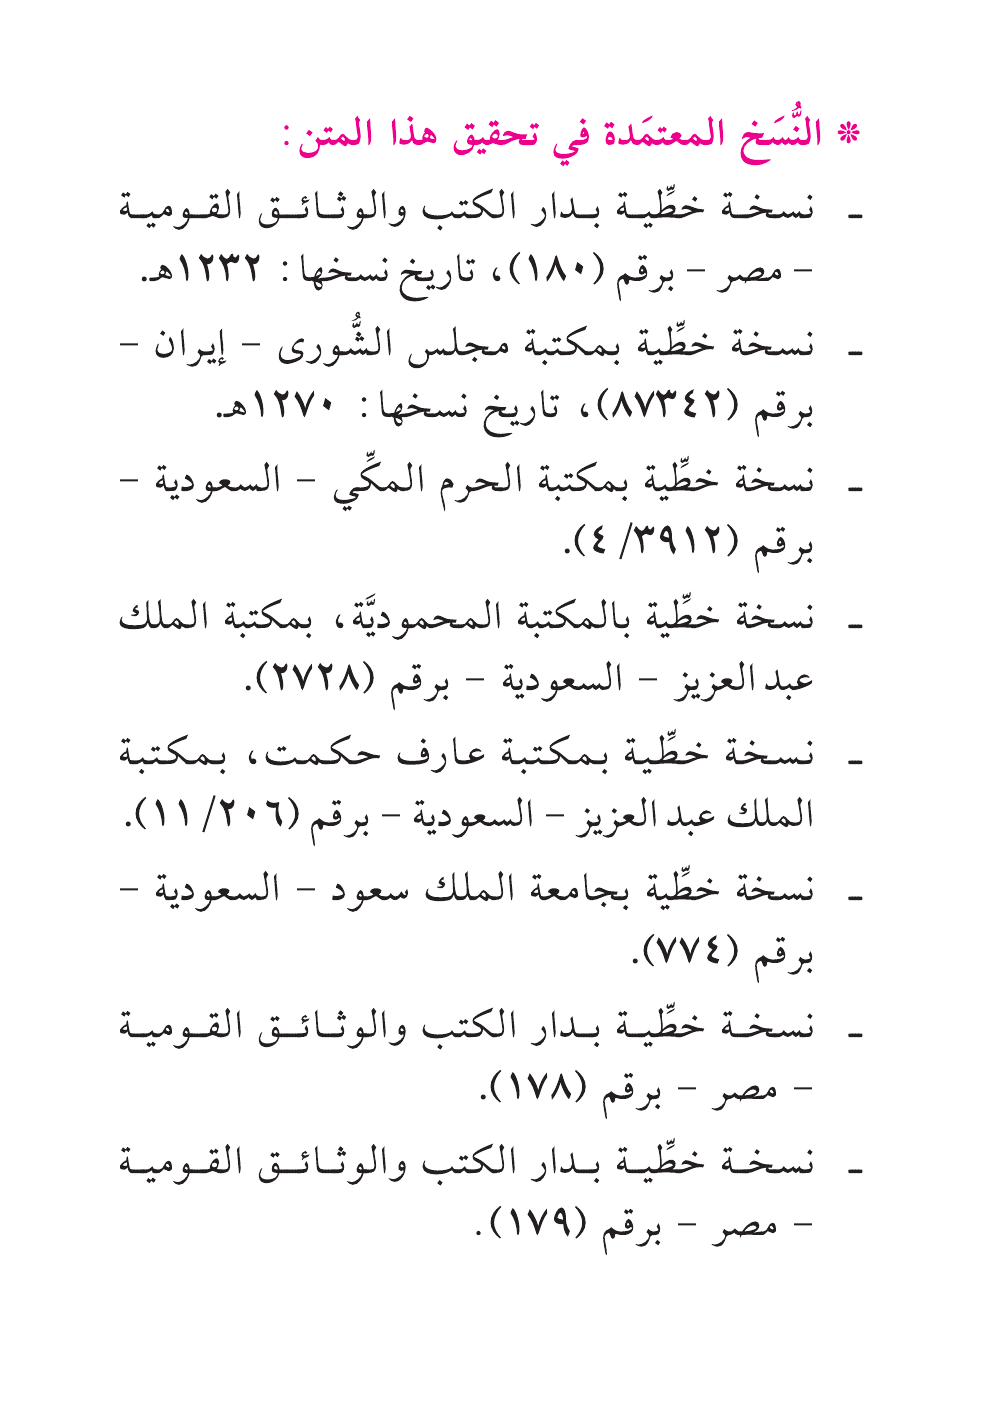 ❊ النُّسَخ المعتمَدة في تحقيق هذا المتن:
ـ نسخة خطِّية بدار الكتب والوثائق القومية
– مصر – برقم (١٨٠)، تاريخ نسخها: ١٢٣٢هـ.
ـ نسخة خطِّية بمكتبة مجلس الشُّورى – إيران –
برقم (٨٧٣٤٢)، تاريخ نسخها: ١٢٧٠هـ.
ـ نسخة خطِّية بمكتبة الحرم المكِّي – السعودية –
برقم (٣٩١٢/ ٤).
ـ نسخة خطِّية بالمكتبة المحموديَّة، بمكتبة الملك
عبد العزيز – السعودية – برقم (٢٧٢٨).
ـ نسخة خطِّية بمكتبة عارف حكمت، بمكتبة
الملك عبد العزيز – السعودية – برقم (٢٠٦/ ١١).
ـ نسخة خطِّية بجامعة الملك سعود – السعودية –
برقم (٧٧٤).
ـ نسخة خطِّية بدار الكتب والوثائق القومية
– مصر – برقم (١٧٨).
ـ نسخة خطِّية بدار الكتب والوثائق القومية
– مصر – برقم (١٧٩).